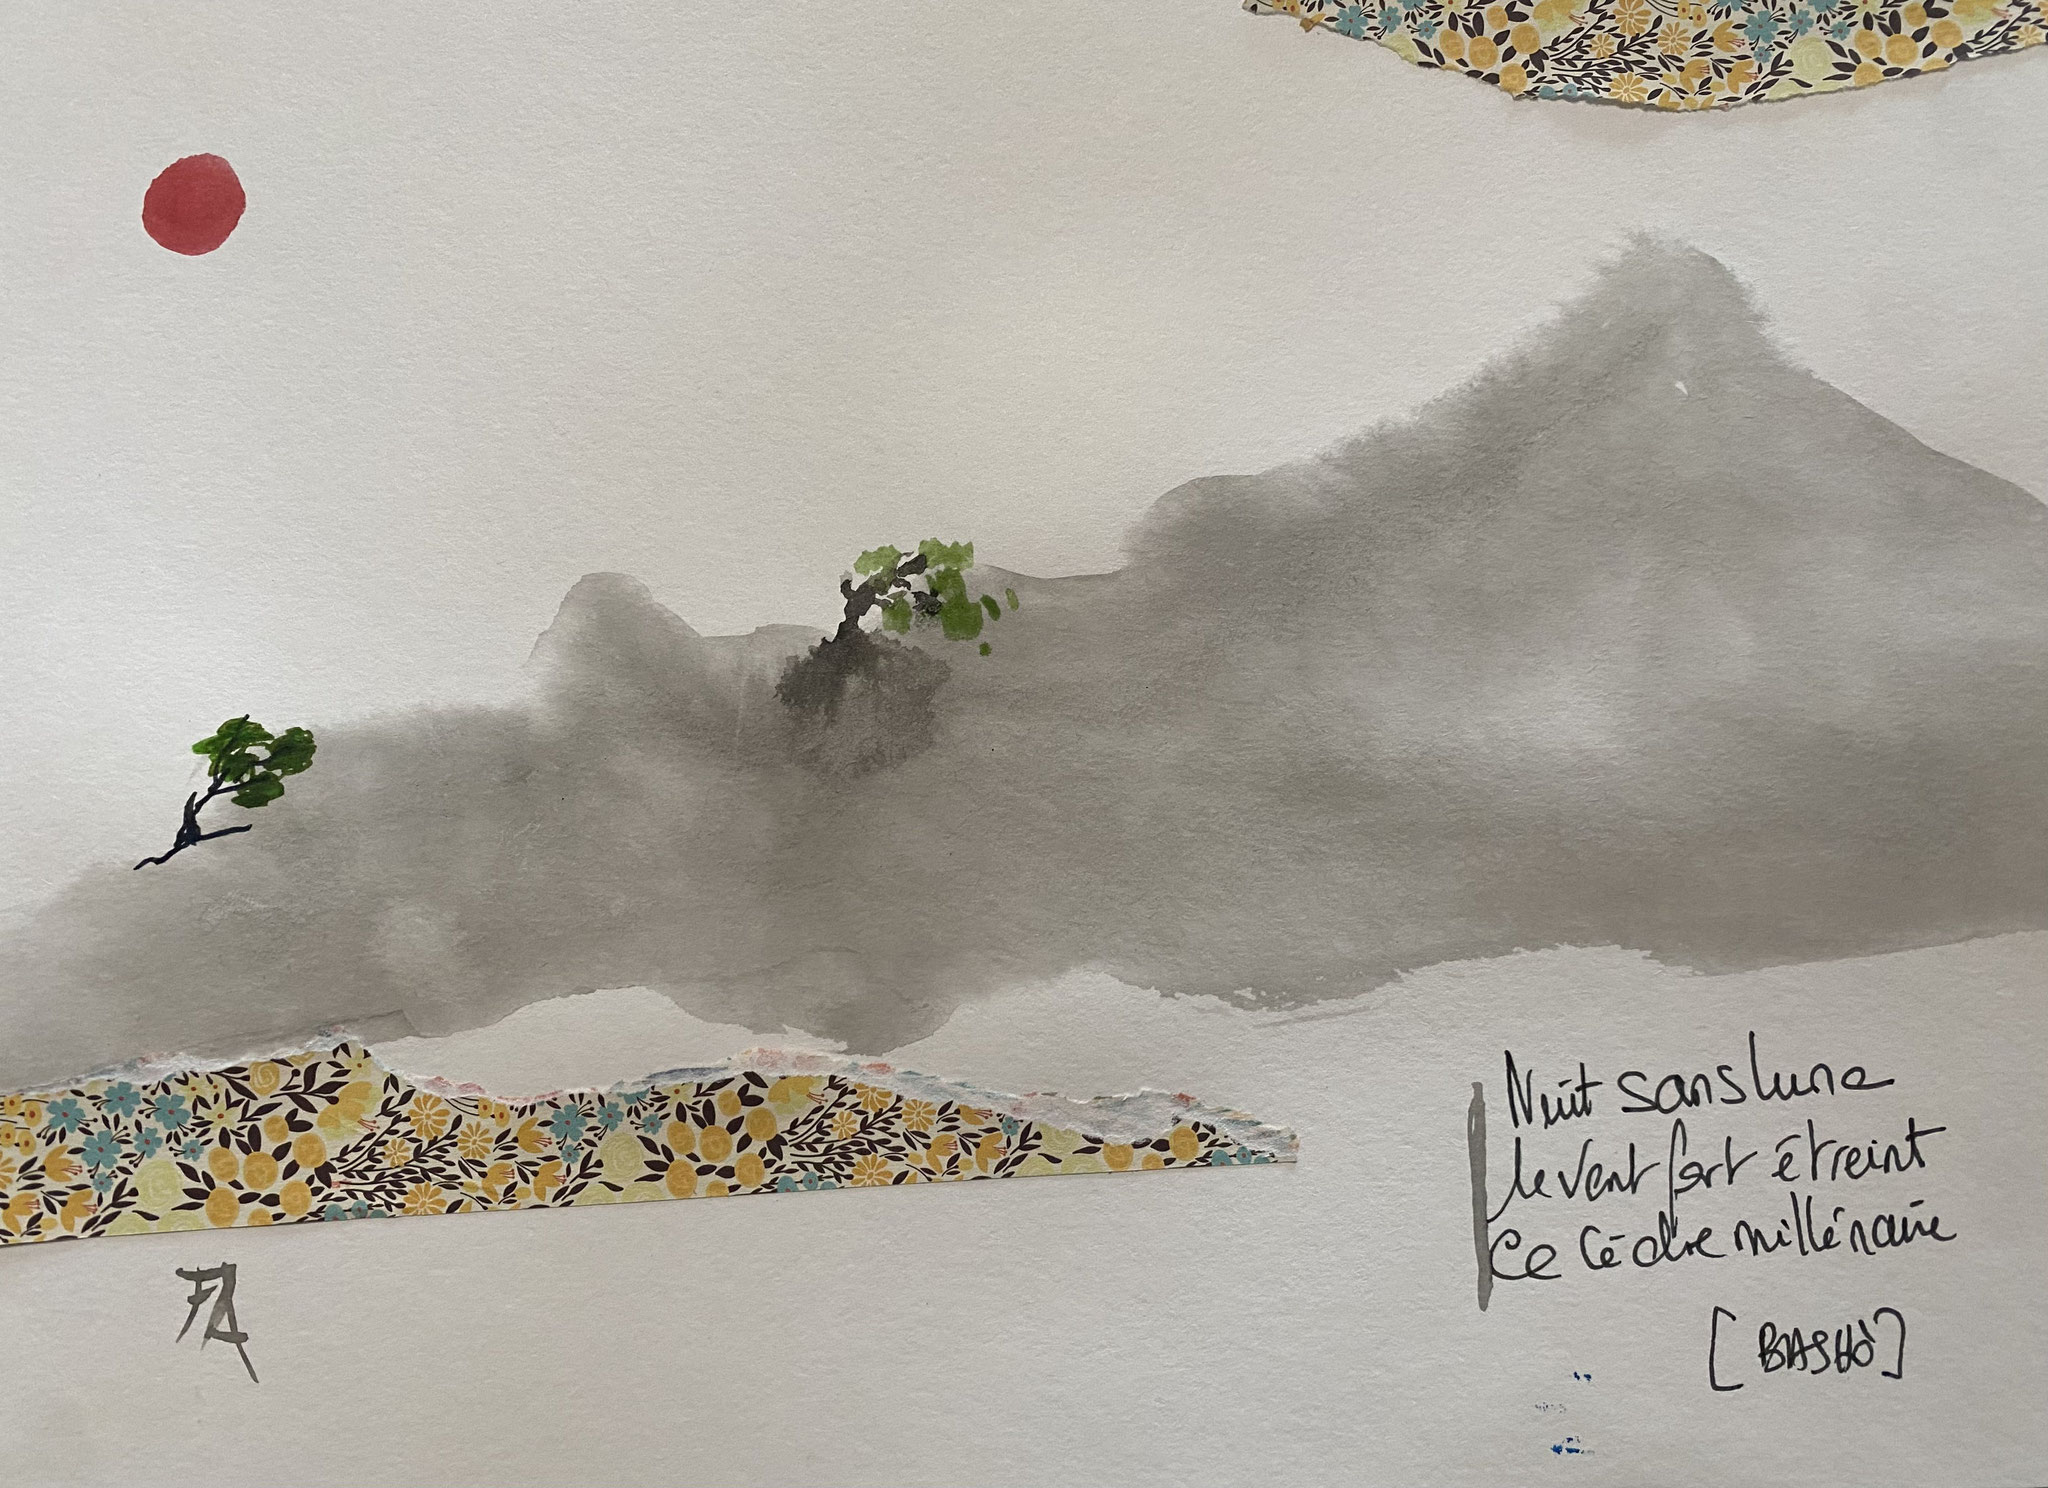 Nuit sans lune
le vent fort étreint
Ce cèdre millénaire
[BASHÔ]
FA